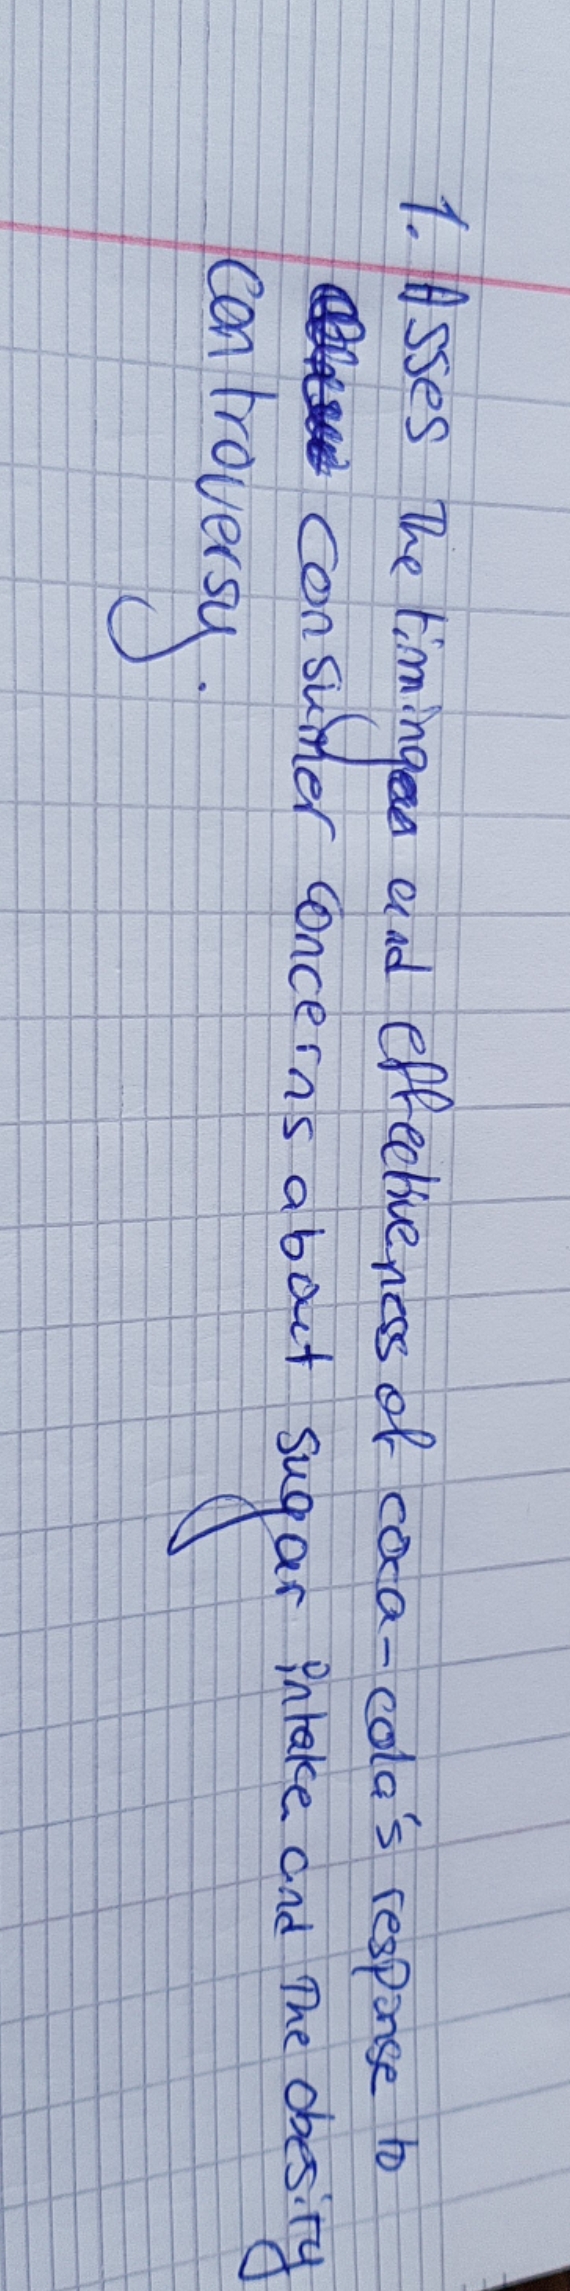 1. Asses the timing and effectiveness of coca-cola's response to
consumer concerns about sugar intake and the obesity
controversy.